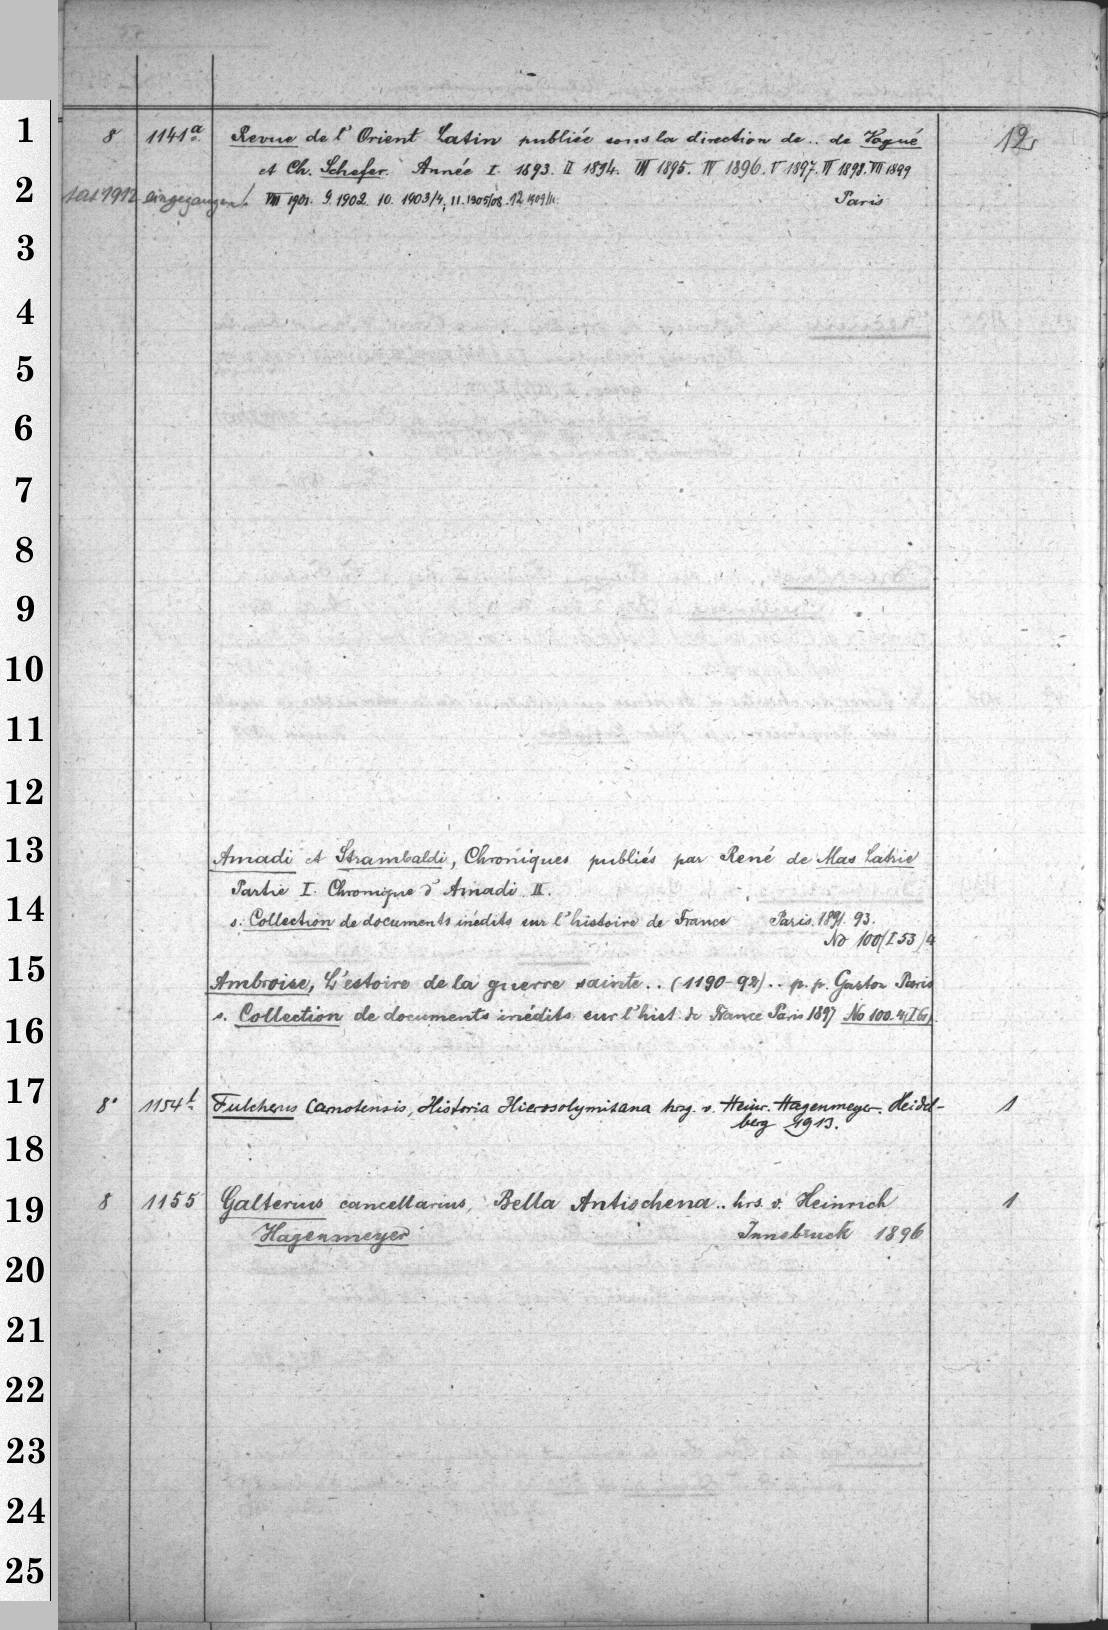 1
8 1141a. Revue de l' Orient Latin publiée sous la direction de .. de Vogué 12
et Ch. Schefer. Année I. 1893. II 1894. III 1895. IV 1896. V 1897. VI 1898. VII 1899
2
1912 eingegangen! VIII 1901. 9. 1902. 10. 1903/4, 11. 1905/08. 12 1909/11. Paris
3
4
5
6
7
8
9
10
11
12
13
Amadi et Strambaldi, Chroniques publiés par René de Mas Latrie
Partie I. Chronique d' Amadi II.
14
s. Collection de documents inédits sur l'histoire de France Paris. 1891. 93.
No 100 (I 53) a
15
Ambroise, L'estoire de la guerre sainte .. (1190-92) .. p. p. Gaston Paris
s. Collection de documents inédits sur l'hist. de France Paris 1897 No 100.
16
17
8° 1154 Fulcherus Carnotensis, Historia Hierosolymitana hrsg. v. Heinr. Hagenmeyer. Heidel- 1
berg 1913.
18
19
8 1155 Galterius cancellarius, Bella Antiochena .. hrs. v. Heinrich 1
Hagenmeyer Innsbruck 1896
20
21
22
23
24
25